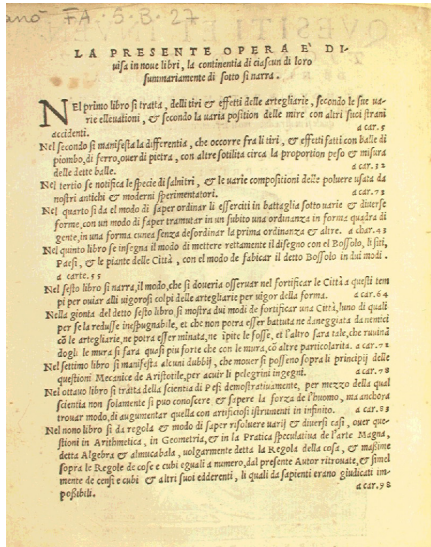 anò FA. 5. B. 27
LA PRESENTE OPERA E' DI-
uisa in noue libri, la continentia di ciascun di loro
summariamente di sotto si narra.
NEl primo libro si tratta, delli tiri & effetti delle artegliarie, secondo le sue ua-
rie elleuationi, & secondo la uaria position delle mire con altri suci strani
accidenti. a car. 5
Nel secondo si manifesta la differentia, che occorre fra li tiri, & effetti fatti con balle di
piombo, di ferro, ouer di pietra, con altre sotilita circa la proportion peso & misura
delle dette balle. a car. 52
Nel tertio se notifica le specie di salnitri, & le uarie compositioni delle poluere usata da
nostri antichi & moderni sperimentatori. a car. 72
Nel quarto si da el modo di saper ordinar li esserciti in battaglia sotto uarie & diuerse
forme, con un modo di saper tramutar in un subito una ordinanza in forma quadra di
gente, in una forma cunea senza desordinar la prima ordinanza & altre. a char. 43
Nel quinto libro se insegna il modo di mettere rettamente il disegno con el Bossolo, li siti,
Paesi, & le piante delle Città, con el modo de fabicar il detto Bossolo in dui modi.
a carte. 55
Nel sesto libro si narra, il modo, che si doueria osseruar nel fortificar le Città a questi tem
pi per ouiar alli uigorosi colpi delle artegliarie per uigor della forma. a car. 64
Nella gionta del detto sesto libro si mostra dui modi de fortificar una Città, luno di quali
per se la redusse inespugnabile, et che non potra esser battuta ne daneggiata da nemici
cō le artegliarie, ne potra esser minata, ne ipite le fosse, et l'altro sara tale, che ruuinā
dogli le mura si fara quasi piu forte che con le mura, cō altre particolarita. a car. 72
Nel settimo libro si manifesta alcuni dubbij, che mouer si posseno sopra li principij delle
questioni Mecanice de Aristotile, per acuir li pelegrini ingegni. a car. 78
Nel ottauo libro si tratta della scientia di Pesi demostratiuamente, per mezzo della qual
scientia non solamente si puo conoscere & sapere la forza de l'huomo, ma anchora
trouar modo, di augumentar quella con artificiosi istrumenti in infinito. a car. 83
Nel nono libro si da regola & modo di saper risoluere uarij & diuersi casi, ouer que-
stioni in Arithmetica, in Geometria, & in la Pratica speculatiua de l'arte Magna,
detta Algebra & almucabala, uolgarmente detta la Regola della cosa, & maßime
sopra le Regole de cose e cubi eguali a numero, dal presente Autor ritrouate, & simel
mente de censi e cubi & altri suoi edderenti, li quali da sapienti erano giudicati im-
poßibeli. a car. 98